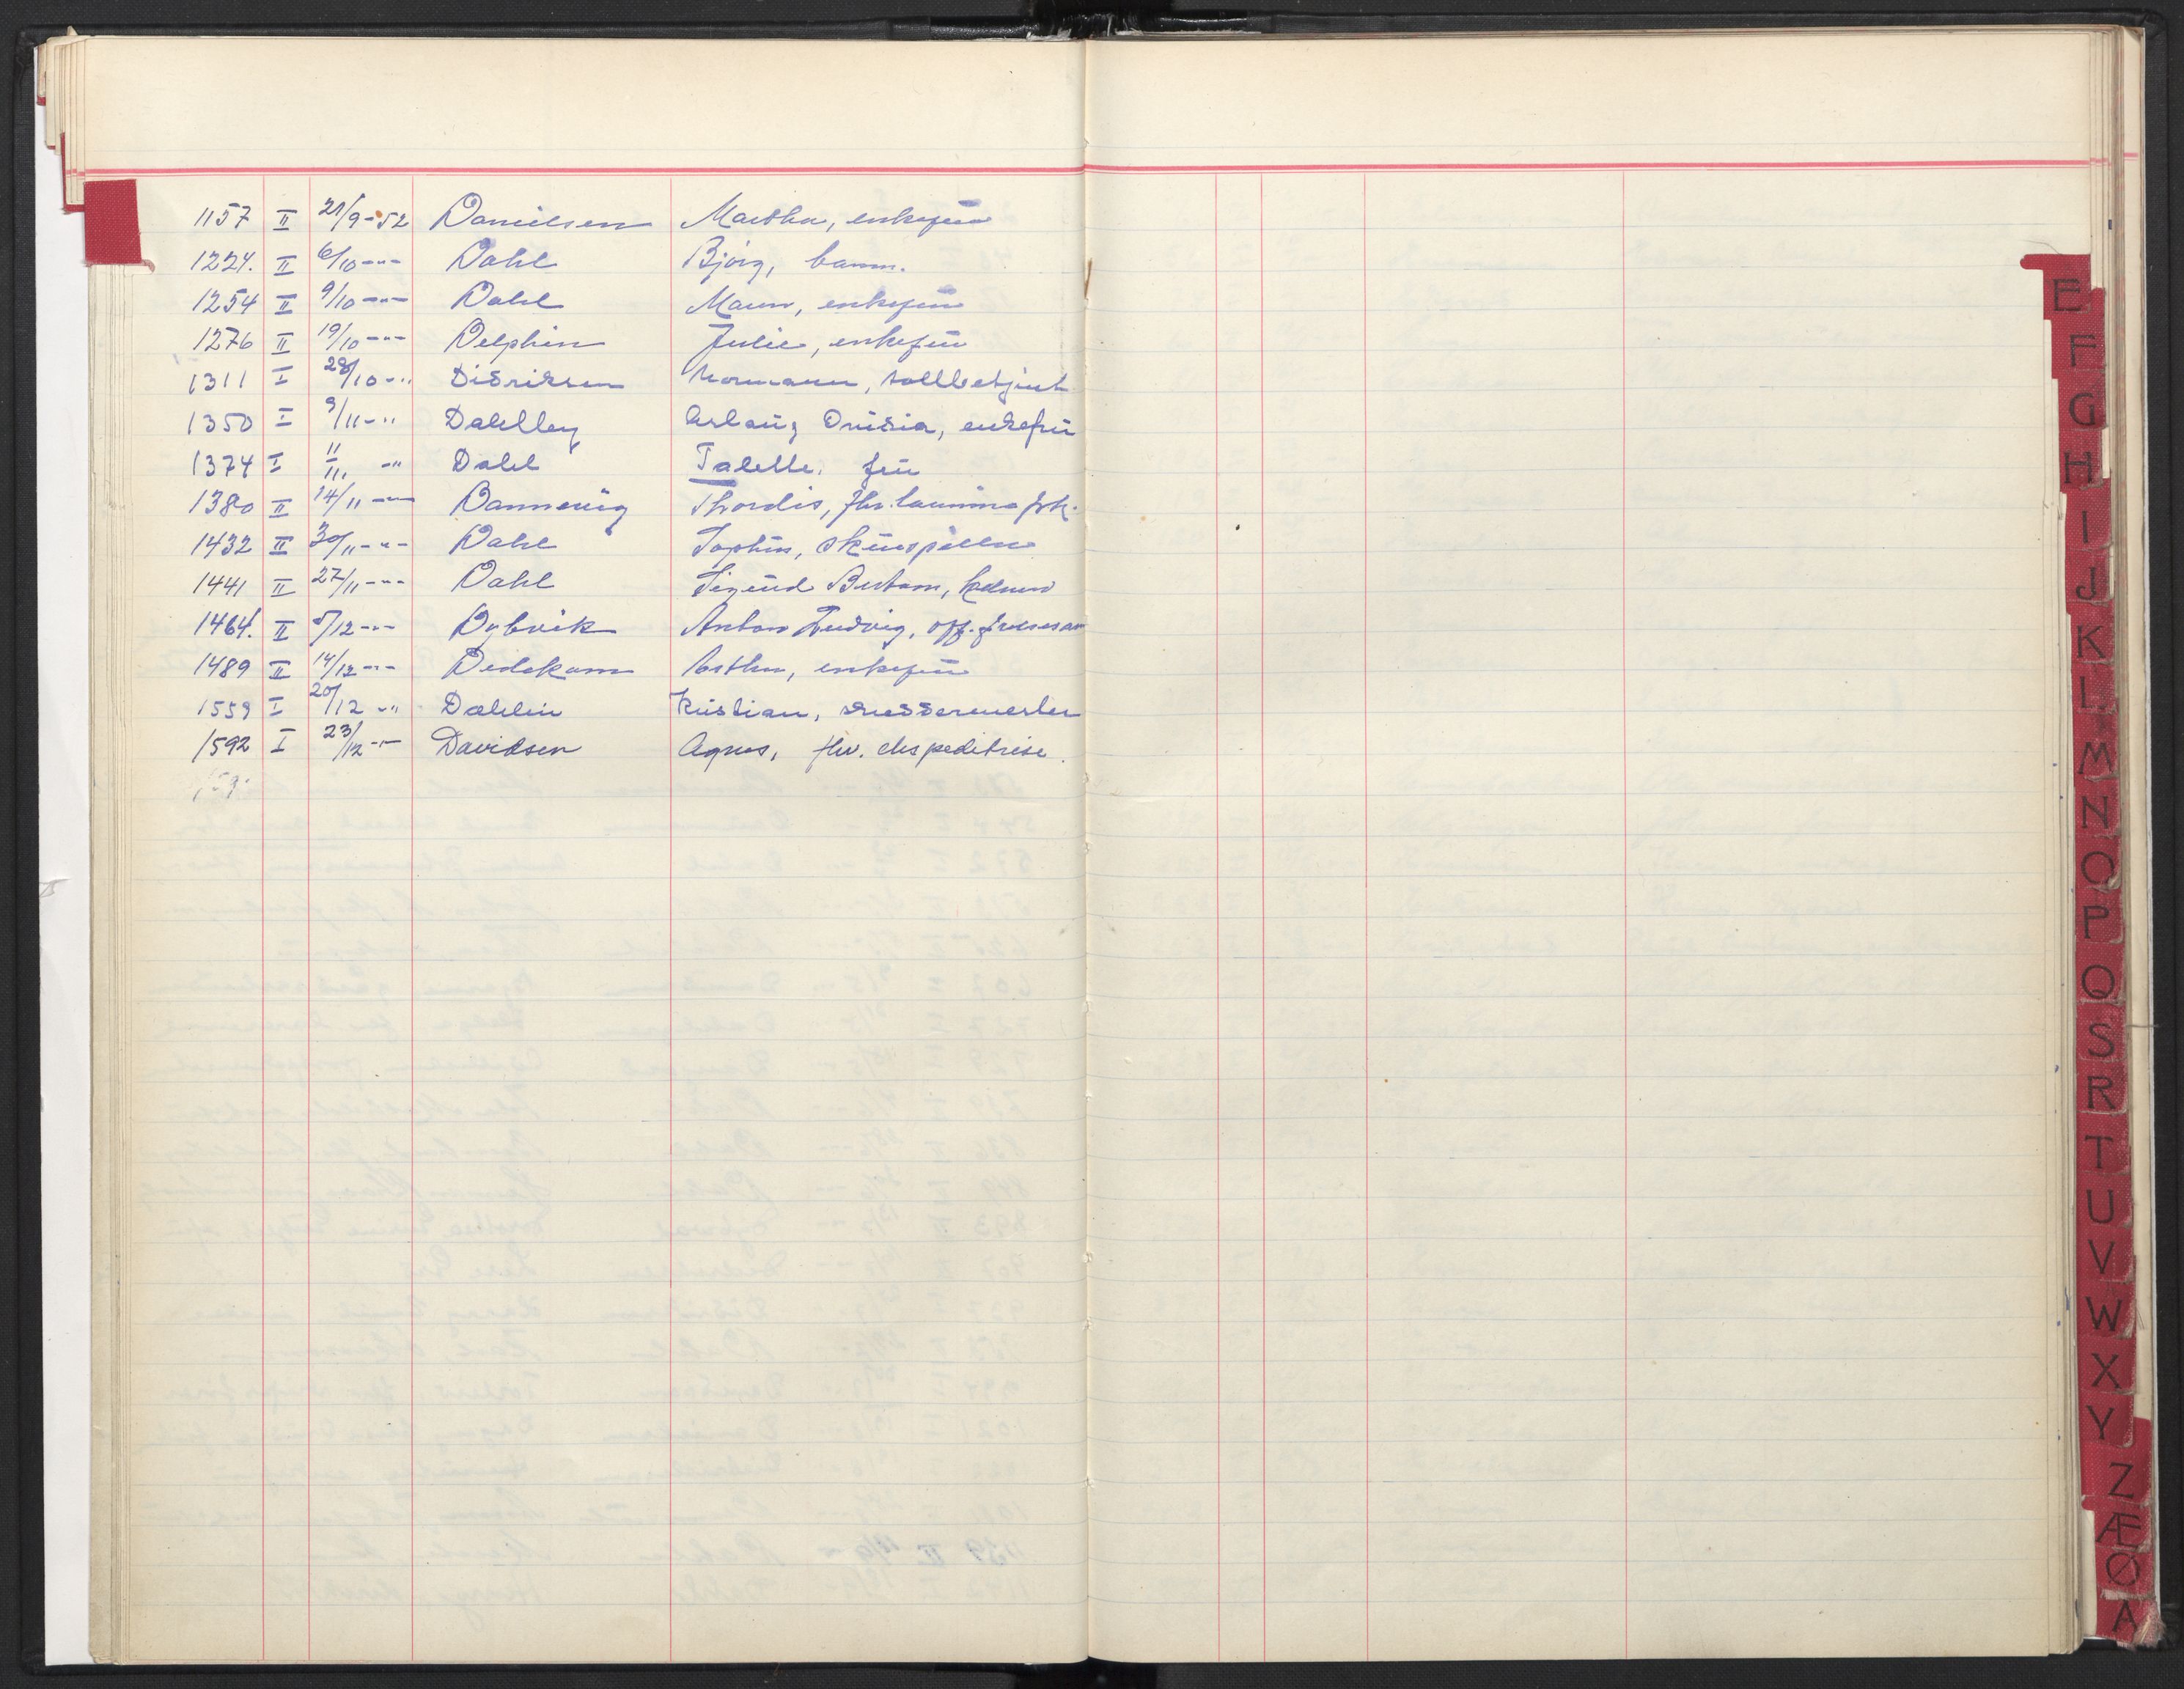 1157 II 21/9-52 Danielsen Martha, enkefru
1224. II 6/10 -"- Dahl Bjørg, barn.
1254 II 9/10 -"- Dahl Maren, enkefru
1276 II 19/10 -"- Delphin Julie, enkefru
1311 I 28/10 -" Didriksen Normann, tollbetjent
1350 I 9/11 -" Dahlley Aslaug Onisia, enkefru
1374 I 11/11. -" Dahl Talette. fru
1380 II 14/11 -"- Dannevig Thordis, fhv.
1432 II 20/11 -"- Dahl Sophus, skuespiller
1441 II 27/11 -"- Dahl Sigurd
1464. II 5/12 -"- Dybvik Anton Ludvig, off.
1489 II 14/12 -"- Dedekam Esther, enkefru
1559 I 20/12 -" Dahlin Kristian, skreddermester
1592 I 23/12 -"- Davidsen Agnes, fhv. ekspeditrise.
159
E
F
G
H
I
J
K
L
M
N
O
P
Q
S
R
T
U
V
W
X
Y
Z
Æ
Ø
A